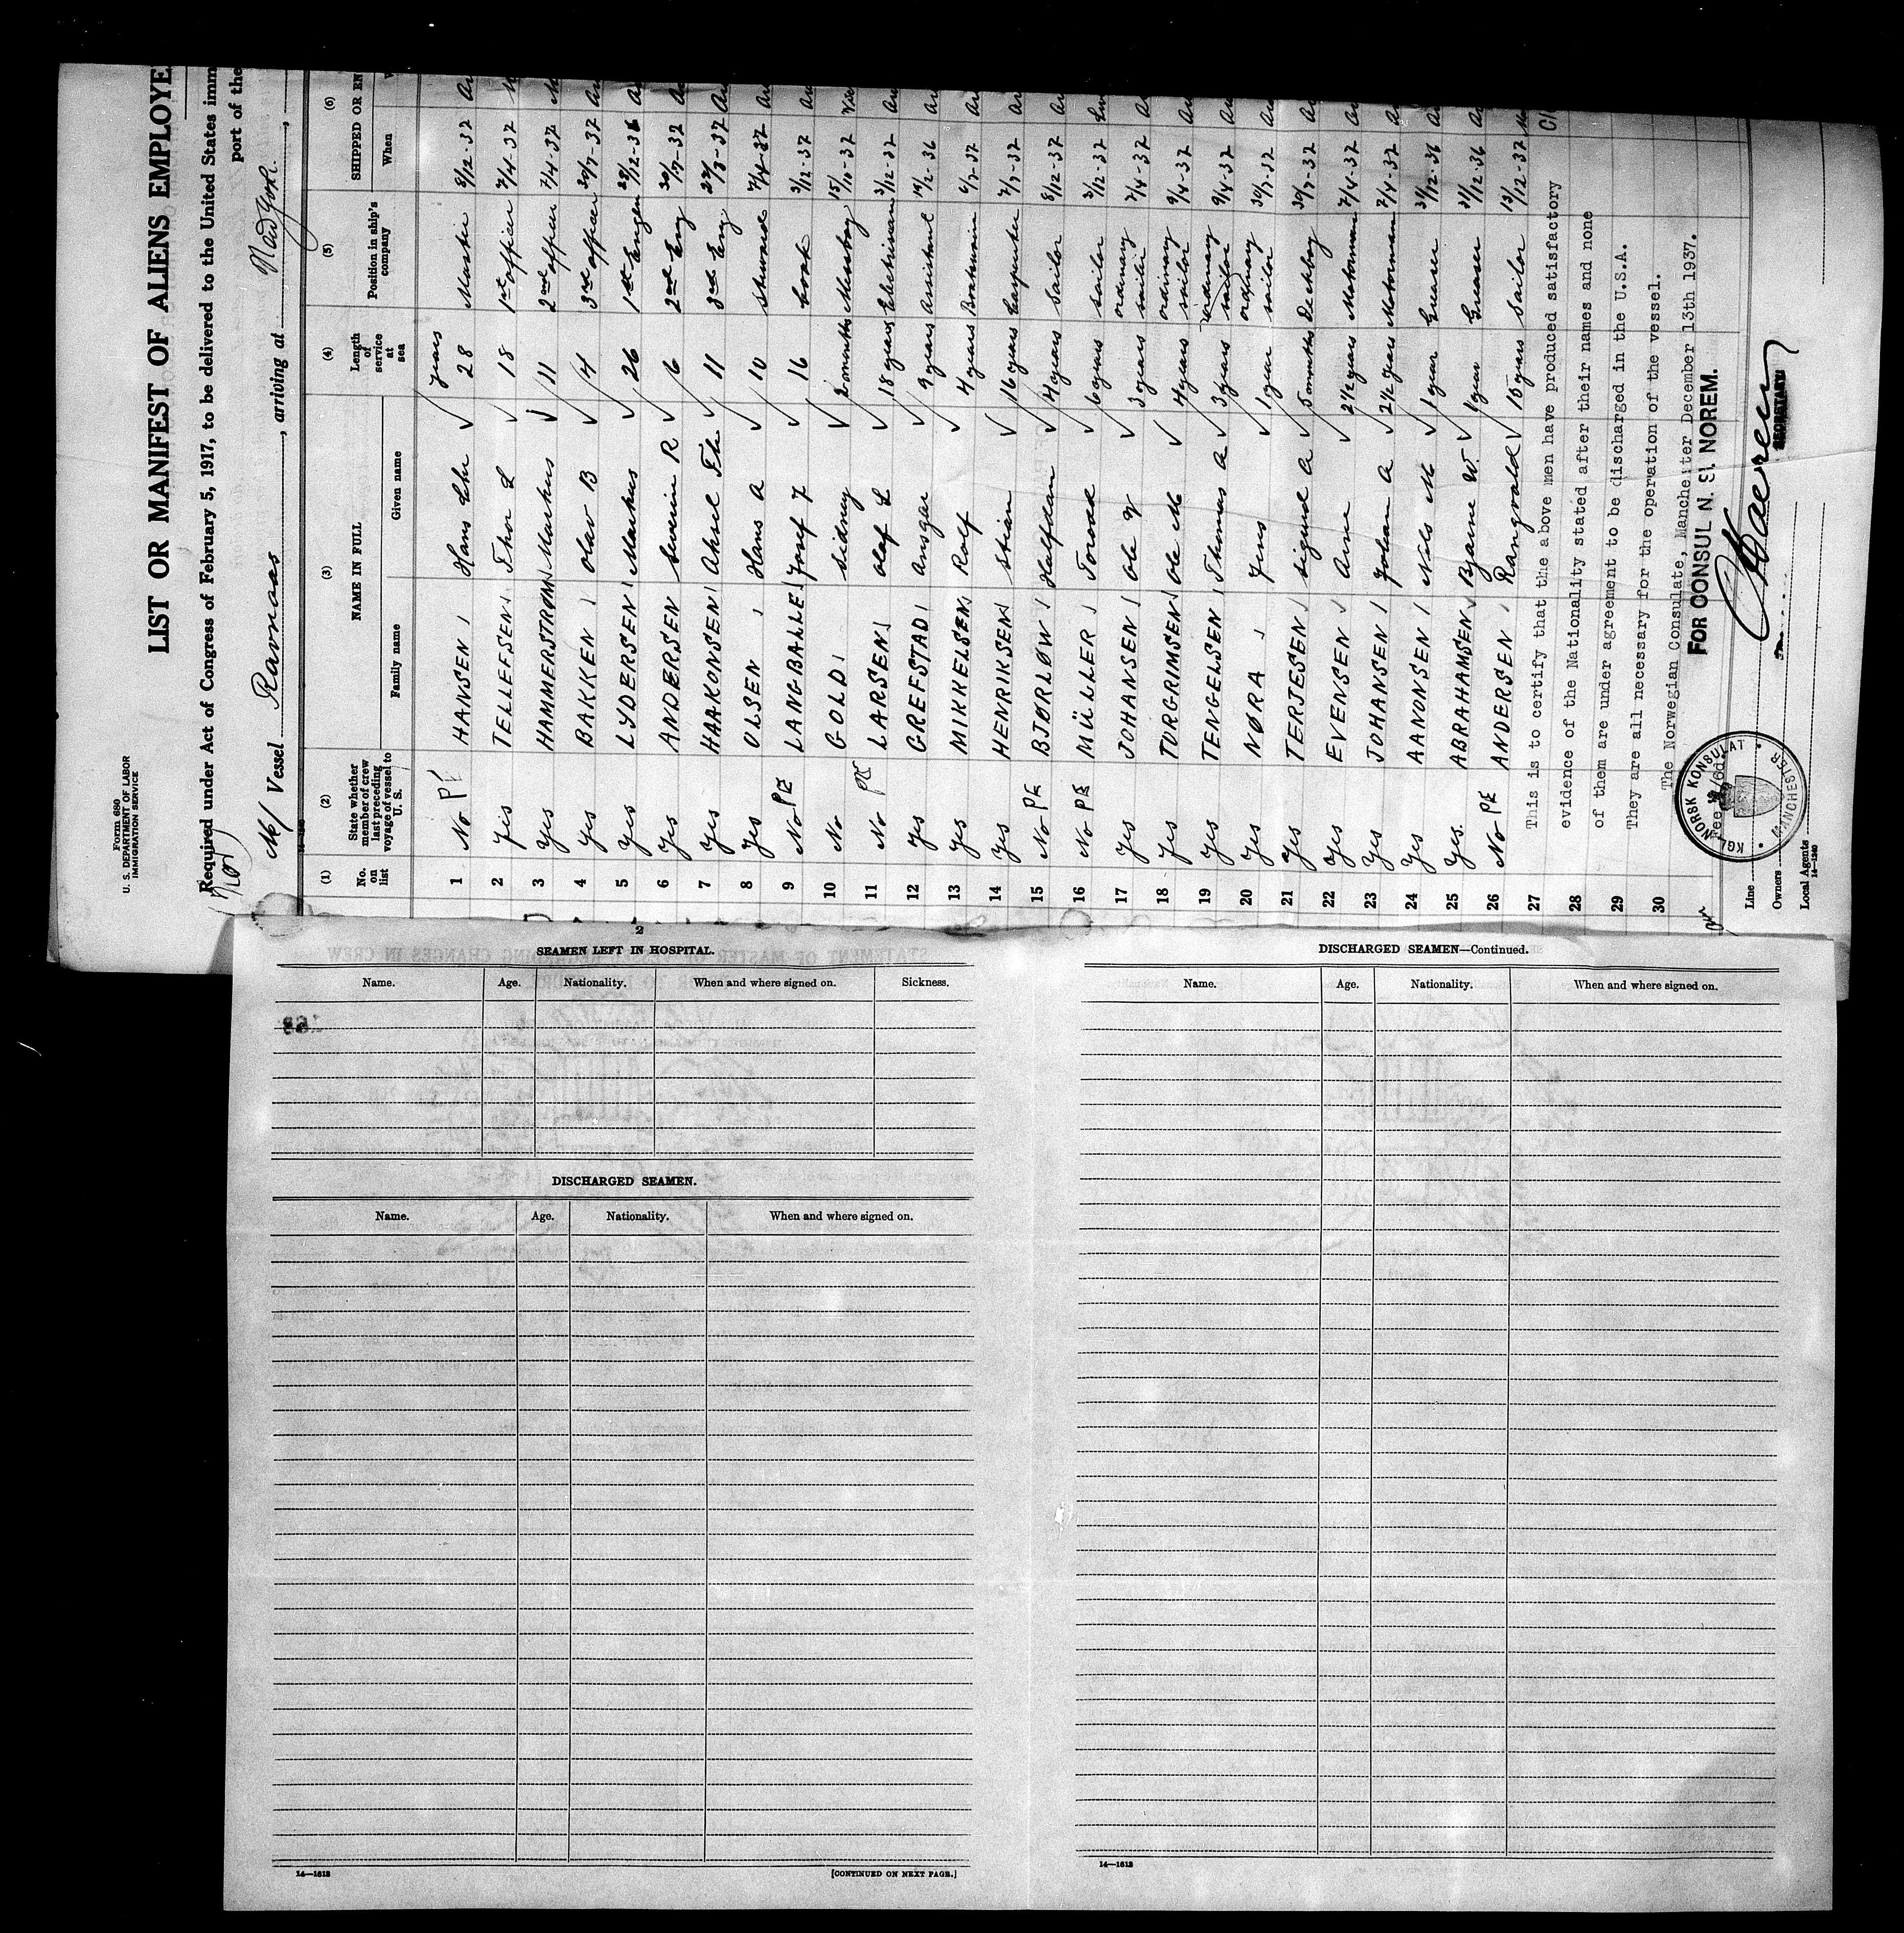 Form 680
U. S. DEPARTMENT OF LABOR
IMMIGRATION SERVICE
LIST OR MANIFEST OF ALIENS EMPLOYE
Required under Act of Congress of February 5, 1917, to be delivered to the United States imm
port of the
Nor
M/ Vessel Ramoas, arriving at New York,
(1) (2) (3) (4) (5) (6)
No. on list
State whether member of crew last preceding voyage of vessel to U. S.
NAME IN FULL
Family name Given name
Length of service at sea
Position in ship's company
SHIPPED OR EN
When
years
1 No PE HANSEN Hans Chr 28 Master 8/12-37
2 Yes TELLEFSEN Thor L 18 1st officer 7/4-37
3 Yes HAMMERSTRØM Markus 11 2nd officer 7/4-37
4 Yes BAKKEN Olav B 4 3rd officer 30/7-37
5 Yes LYDERSEN Markus 26 1st Engen 28/12-36
6 Yes ANDERSEN Severin R 6 2nd Eng 30/7-37
7 Yes HAAKONSEN Aksel Th. 11 3rd Eng 27/8-37
8 Yes OLSEN Hans A 10 Steward 7/4-37
9 No PE LANGBALLE Josef F 16 Cook 3/12-37
10 No GOLD Sidney 2 months Messboy 15/10-37
11 No PE LARSEN Olaf L 18 years Electrician 3/12-37
12 Yes GREFSTAD Ansgar 9 years Assistent 19/2-36
13 Yes MIKKELSEN Rolf 4 years Boatswain 6/7-37
14 Yes HENRIKSEN Stian 16 years Carpenter 7/7-37
15 No PE BJØRLØW Halfdan 4 years Sailor 8/12-37
16 No PE MÜLLER Torodd 6 years Sailor 3/12-37
17 Yes JOHANSEN Ole 3 years ordinary sailor 7/4-37
18 Yes TORGRIMSEN Ole M 4 years ordinary sailor 9/4-37
19 Yes TENGELSEN Thomas A 3 years ordinary sailor 9/4-37
20 Yes NØRA Jens 1 year ordinary sailor 30/7-37
21 Yes TERJESEN Sigurd A 5 months Deckboy 30/7-37
22 Yes EVENSEN Arne 2½ years Motorman 7/4-37
23 Yes JOHANSEN Johan A 2½ years Motorman 7/4-37
24 Yes AANONSEN Nils M 1 year Greaser 31/12-36
25 Yes. ABRAHAMSEN Bjarne W. 1 year Greaser 31/12-36
26 No PE ANDERSEN Rangvald 15 years Sailor 13/12-37
27 This is to certify that the above men have produced satisfactory
28 evidence of the Nationality stated after their names and none
29 of them are under agreement to be discharged in the U.S.A.
30 They are all necessary for the operation of the vessel.
The Norwegian Consulate, Manchester December 13th 1937.
FOR CONSUL N. ST. NOREM.
SECRETARY
KGL NORSK KONSULAT
MANCHESTER
Line
Owners
Local Agents
14-1240
2
SEAMEN LEFT IN HOSPITAL.
Name. Age. Nationality. When and where signed on. Sickness.
DISCHARGED SEAMEN.
Name. Age. Nationality. When and where signed on.
14—1613
[CONTINUED ON NEXT PAGE.]
DISCHARGED SEAMEN—Continued.
Name. Age. Nationality. When and where signed on.
14—1613